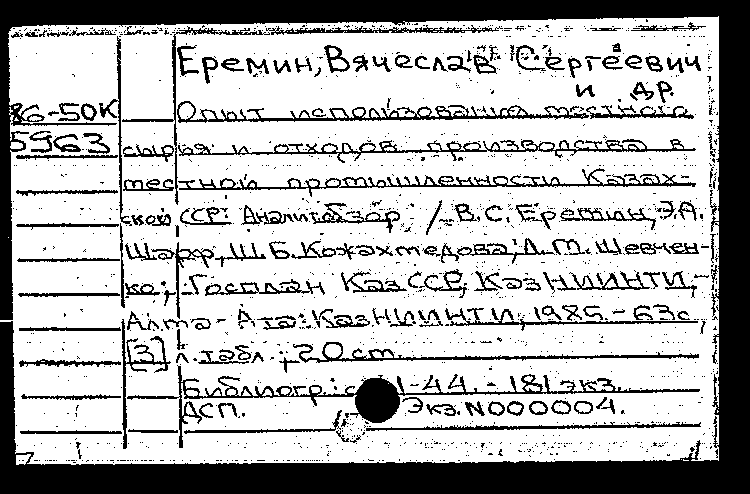 Еремин, Вячеслав Сергеевич
и др.
86-50К Опыт использования местного
5963 сырья и отходов производства в
местной промышленности Казах-
ской ССР: Аналит. обзор / В.С. Еремин, Э.А.
Шарф, Ш.Б. Кожахмедова, Л.М. Шевчен-
ко; Госплан КазССР, КазНИИНТИ,-
Алма-Ата: КазНИИНТИ, 1985.-63с,
[3] л. табл.; 20 cm.
Библиогр.: с. 1-44. - 181 экз.
ДСП. Экз. N000004.